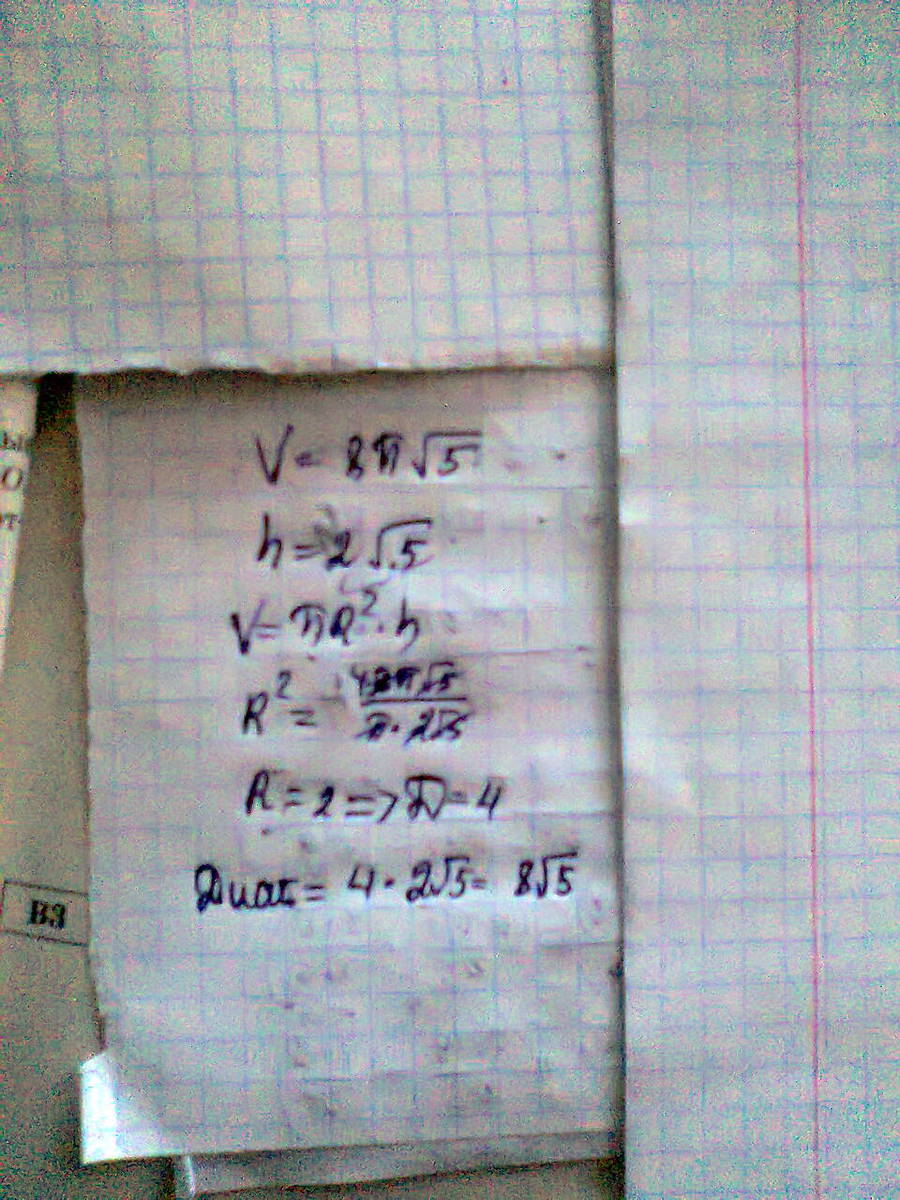 V = 8π√5
h = 2√5
V = πR² · h
R² = 8π√5 / π · 2√5
R = 2 => D = 4
Диаг = 4 · 2√5 = 8√5
В3